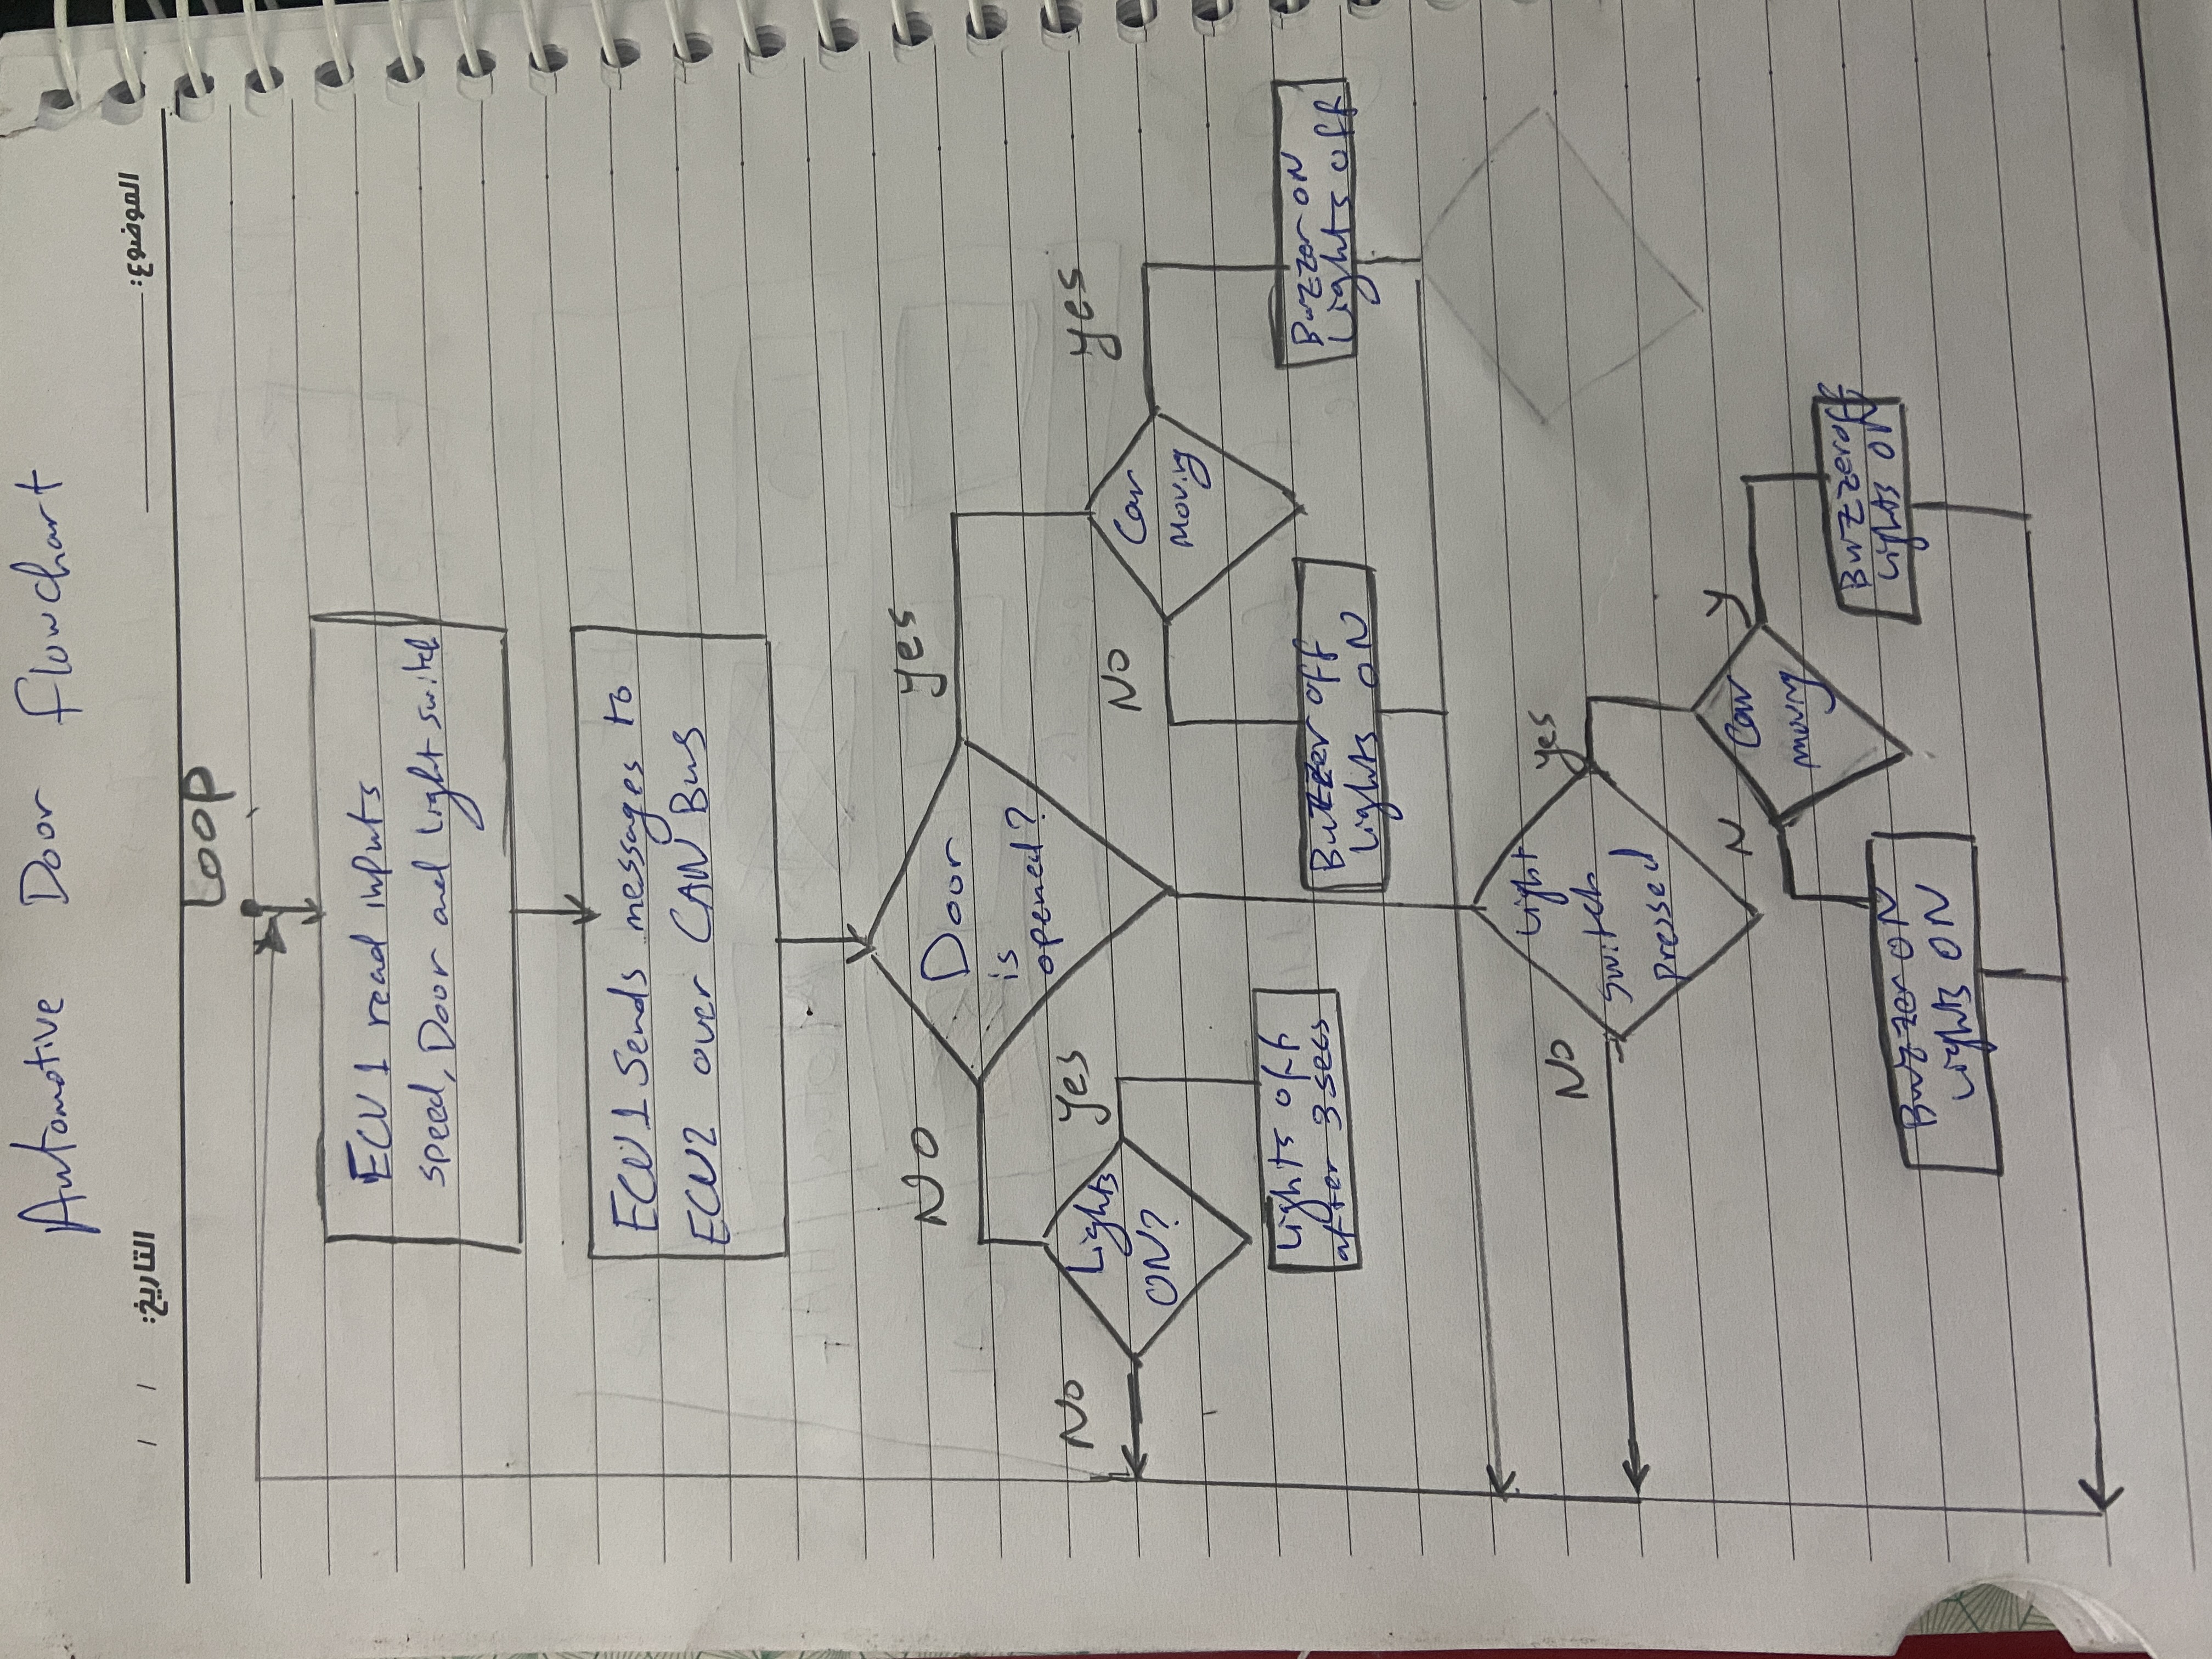 Automotive Door Flowchart
الموضوع:
التاريخ: / /
Loop
ECU 1 read inputs
speed, Door and light switch
ECU 1 Sends messages to
ECU2 over CAN Bus
No
yes
Door
is
opened?
No
Lights
ON?
yes
No
Car
Moving
yes
Lights off
after 3 secs
Buzzer off
Lights ON
Buzzer ON
Lights off
No
Light
switch
pressed
yes
N
Car
moving
y
Buzzer ON
Lights ON
Buzzer off
Lights ON